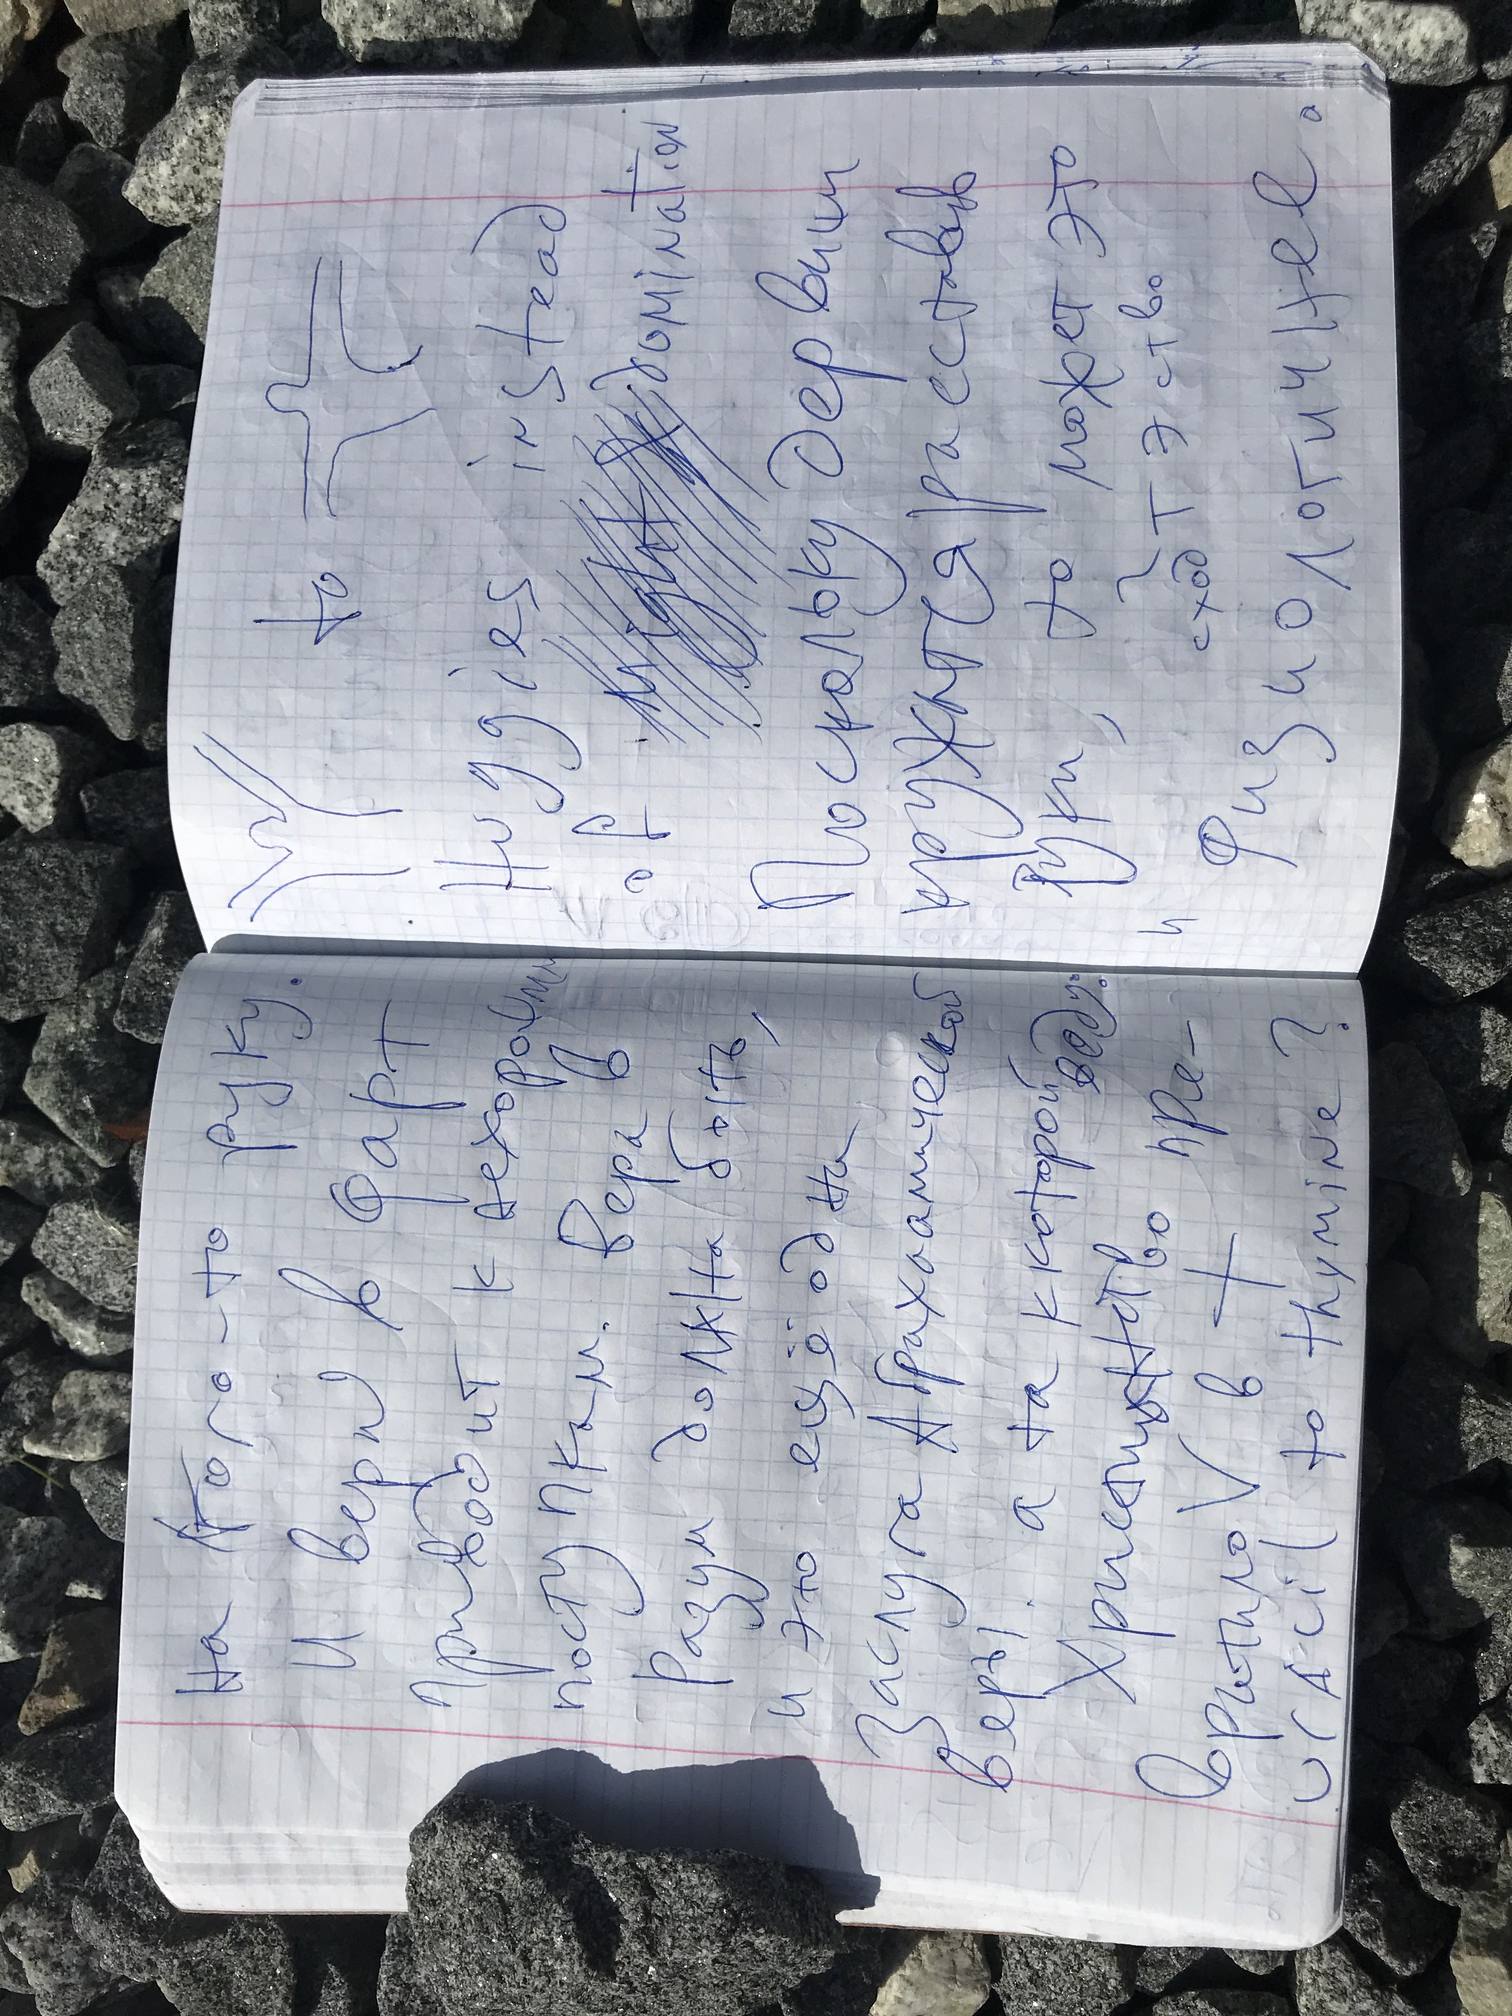 на кого-то руку.
И веры в фарт
приводит к нехорошим
поступкам. Вера в
разум должна быть,
и это ещё одна
заслуга Абрахамической
веры. а на которой
Христианство пре-
вратило V в + воду.
uracil to thymine?
to
Huggies instead
of domination
Поскольку дервиши
кружатся расставив
руки, то может это
и сходТэство
физиологичнее.